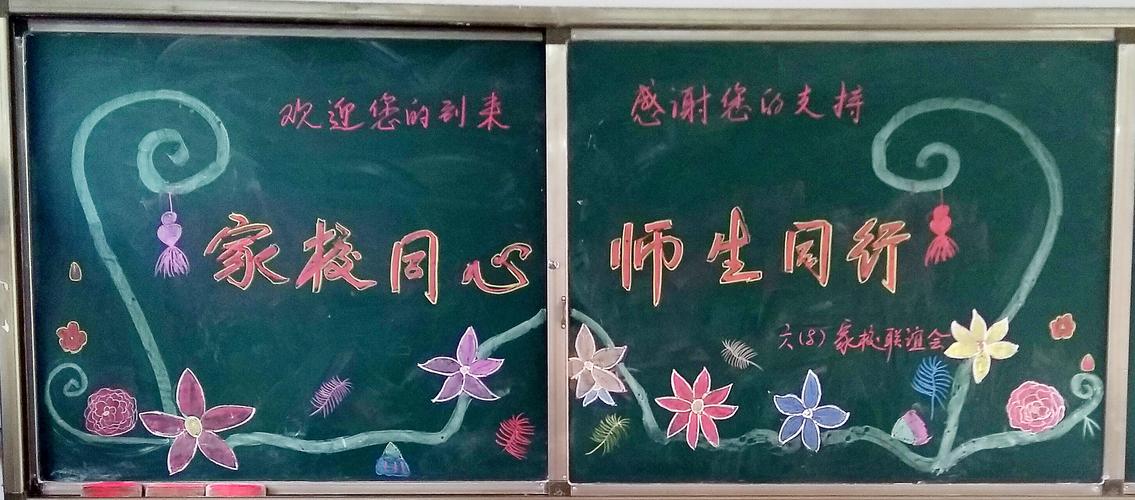 欢迎您的到来
感谢您的支持
家校同心
师生同行
六(8)家校联谊会